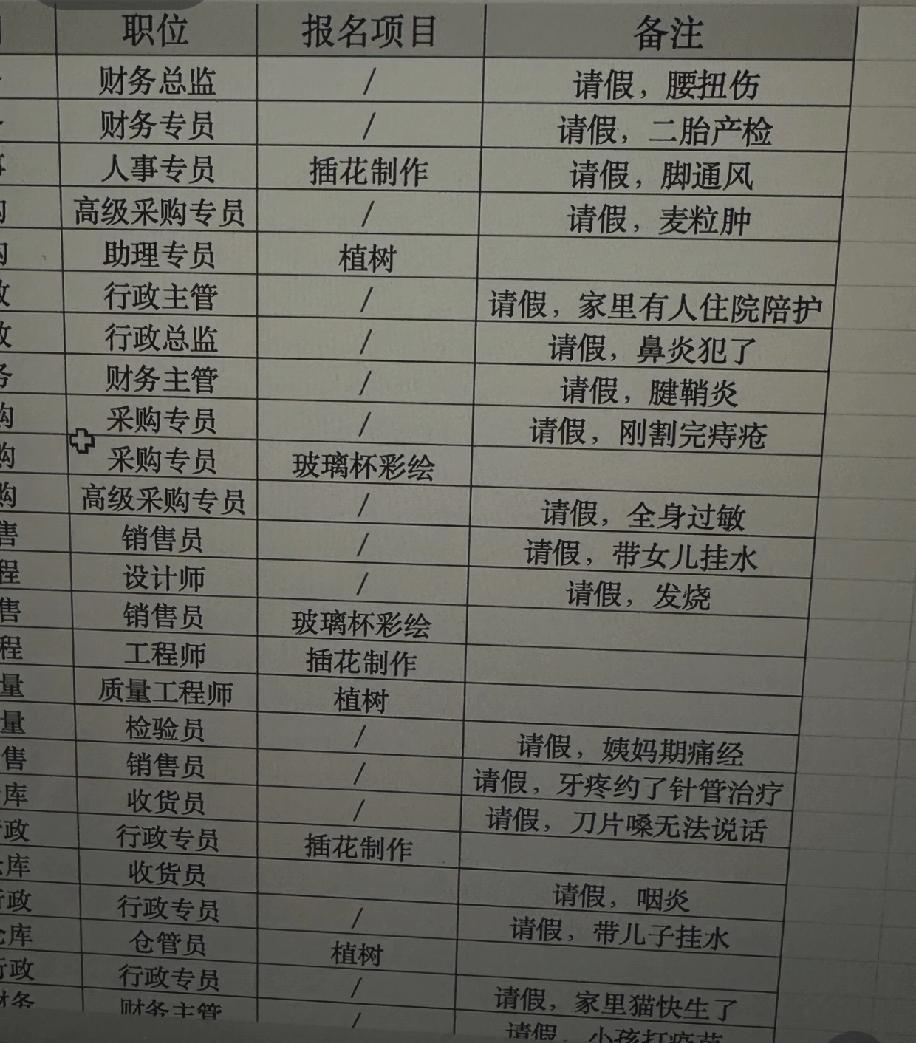 职位 报名项目 备注
财务总监 / 请假，腰扭伤
财务专员 / 请假，二胎产检
事 人事专员 插花制作 请假，脚通风
购 高级采购专员 / 请假，麦粒肿
购 助理专员 植树
政 行政主管 / 请假，家里有人住院陪护
政 行政总监 / 请假，鼻炎犯了
务 财务主管 / 请假，腱鞘炎
购 采购专员 / 请假，刚割完痔疮
购 采购专员 玻璃杯彩绘
购 高级采购专员 / 请假，全身过敏
售 销售员 / 请假，带女儿挂水
程 设计师 / 请假，发烧
售 销售员 玻璃杯彩绘
程 工程师 插花制作
量 质量工程师 植树
量 检验员 / 请假，姨妈期痛经
售 销售员 / 请假，牙疼约了针管治疗
库 收货员 / 请假，刀片嗓无法说话
政 行政专员 插花制作
库 收货员 请假，咽炎
行政 行政专员 / 请假，带儿子挂水
仓库 仓管员 植树
行政 行政专员 / 请假，家里猫快生了
财务 财务主管 / 请假，小孩打疫苗